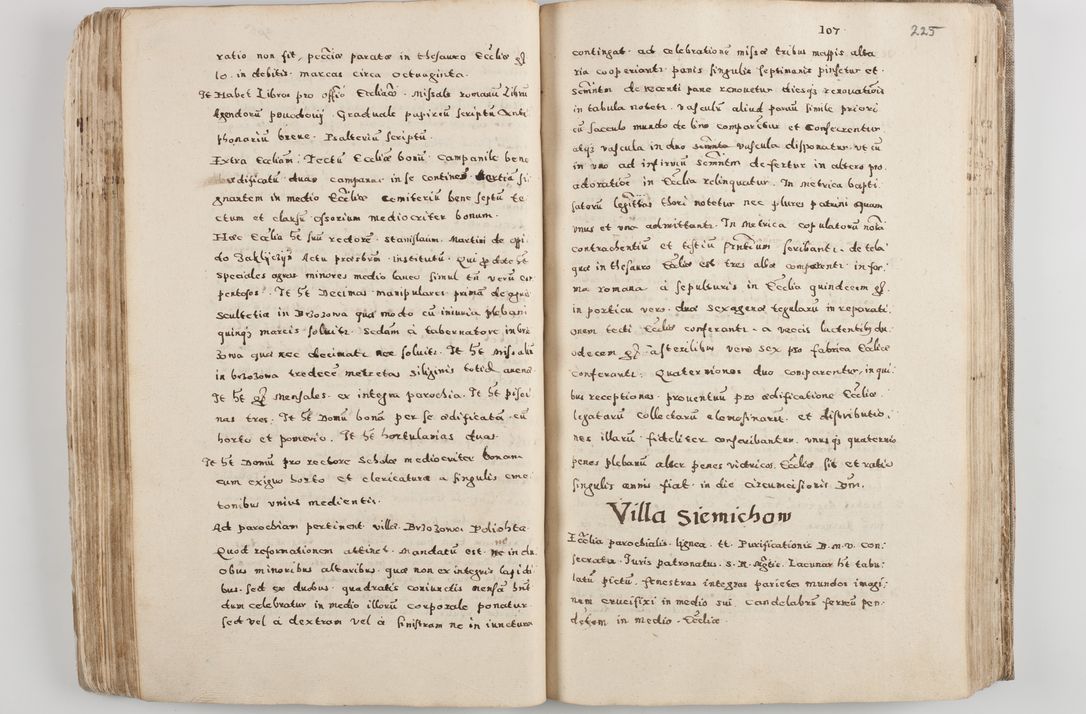 ratio non fit, pecciã paratæ in thesauro Ecclîæ gl
10. in debitis marcas circa octuaginta.
It Habet Libros pro offio Ecclîaco. Missale romanũ Librũ
Agendorũ Graduale papireũ scriptũ Anti
phonariũ breue. Psalteriũ scriptũ.
Extra Eccliam. Tectũ Eccliæ bonũ campanile bene
ædificatũ duas campanas in se continet tertia si
gnantem in medio Eccliæ cemiteriũ bene septũ te
ctum et clausũ ossorium mediocriter bonum.
Hæc Ecclîa ht suũ rectorẽ. Stanislaum. Martini de oppi
do Zakliczÿn Actu præsbrũ institutũ. Qui
speciales agros minores medio laneo simul tñ verũ
It ht Decimas manipulares primã de agris
Scultetia in Brzozowa quã modo cũ iniuria plebani
quinq₃ marcis soluit. Sedam à tabernatore in brzo
zowa quã nec decimat nec soluit. It ht missaliũ
in brzozowa tredecẽ metretas siliginis totid auenæ
It ht gl mensales. ex integra parochia. It ht pisci
nas tres. It ht Domũ bonã per se ædificatã cũ
horto et pomerio. It ht hortulanias duas
It ht Domũ pro rectore Scholæ mediocriter bonam
cum exiguo horto et clericaturã à singulis cme
tonibus vnius medientis.
Ad parochiam pertinent villa Brzozowa
Quod reformationem attinet. Mandatũ est ne in du
obus minoribus altaribus quæ non ex integris lapidi
bus. sed ex duobus quadratis coniunctis mensã hnt
dum celebratur in medio illorũ corporale ponatur
sed vel à dextram vel à sinistram ne in iunctura
107.
225
contingat. ad celebrationẽ missæ tribus mappis alta
ria cooperiant. panis singulis septimanis pinsetur et
Scmntm de recenti pane renouetur diesq₃ renouationis
in tabula notet. Vasculũ aliud paruũ simile priori
cũ sacculo mundo de bino comparetur et conseruentur
atq₃ vascula in duo vascula disponatur vt cũ
in vno ad infirmũ Scmntm defertur in altero pro
adoratioe in Ecclia relinquatur. In metrica bapti
satorũ legittas thori notetur nec plures patrini quam
vnus et vna admittant. In metrica copulatorũ nota
contrahentiũ et testiũ scribant. de tela
quæ in thesauro Eccliæ est tres albæ comparent. in for
ma romana. à sepulturis in Ecclia quindecem gl.
in porticu vero. duæ sexagenæ tegularũ in reparati
onem tecti Eccliæ conferant. a vaccis lactentib₃ du
odecem gl. à sterilibus vero sex pro fabrica Eccliæ
conferant. Quaterniones duo comparentur, in qui
bus receptiones. prouentuũ pro ædificatione Eccliæ.
legatarũ collectarũ elemosinarũ et distributio,
nes illarũ fideliter conscribantur. vnus q₃ quaternio
penes plebanũ alter penes vitricos Eccliæ sit et ratio
singulis annis fiat in die circumcisionis Dm̃.
Villa Siemichow
Ecclia parochialis lignea. tt. Purificationis B. M. V. con:
secrata. Juris patronatus. S. R. Lacunar ht tabu:
latũ pictũ. fenestras integras parietes mundos imagi:
nem crucifixi in medio sui. candelabrũ ferreũ pen:
dẽtem in medio. Eccliæ